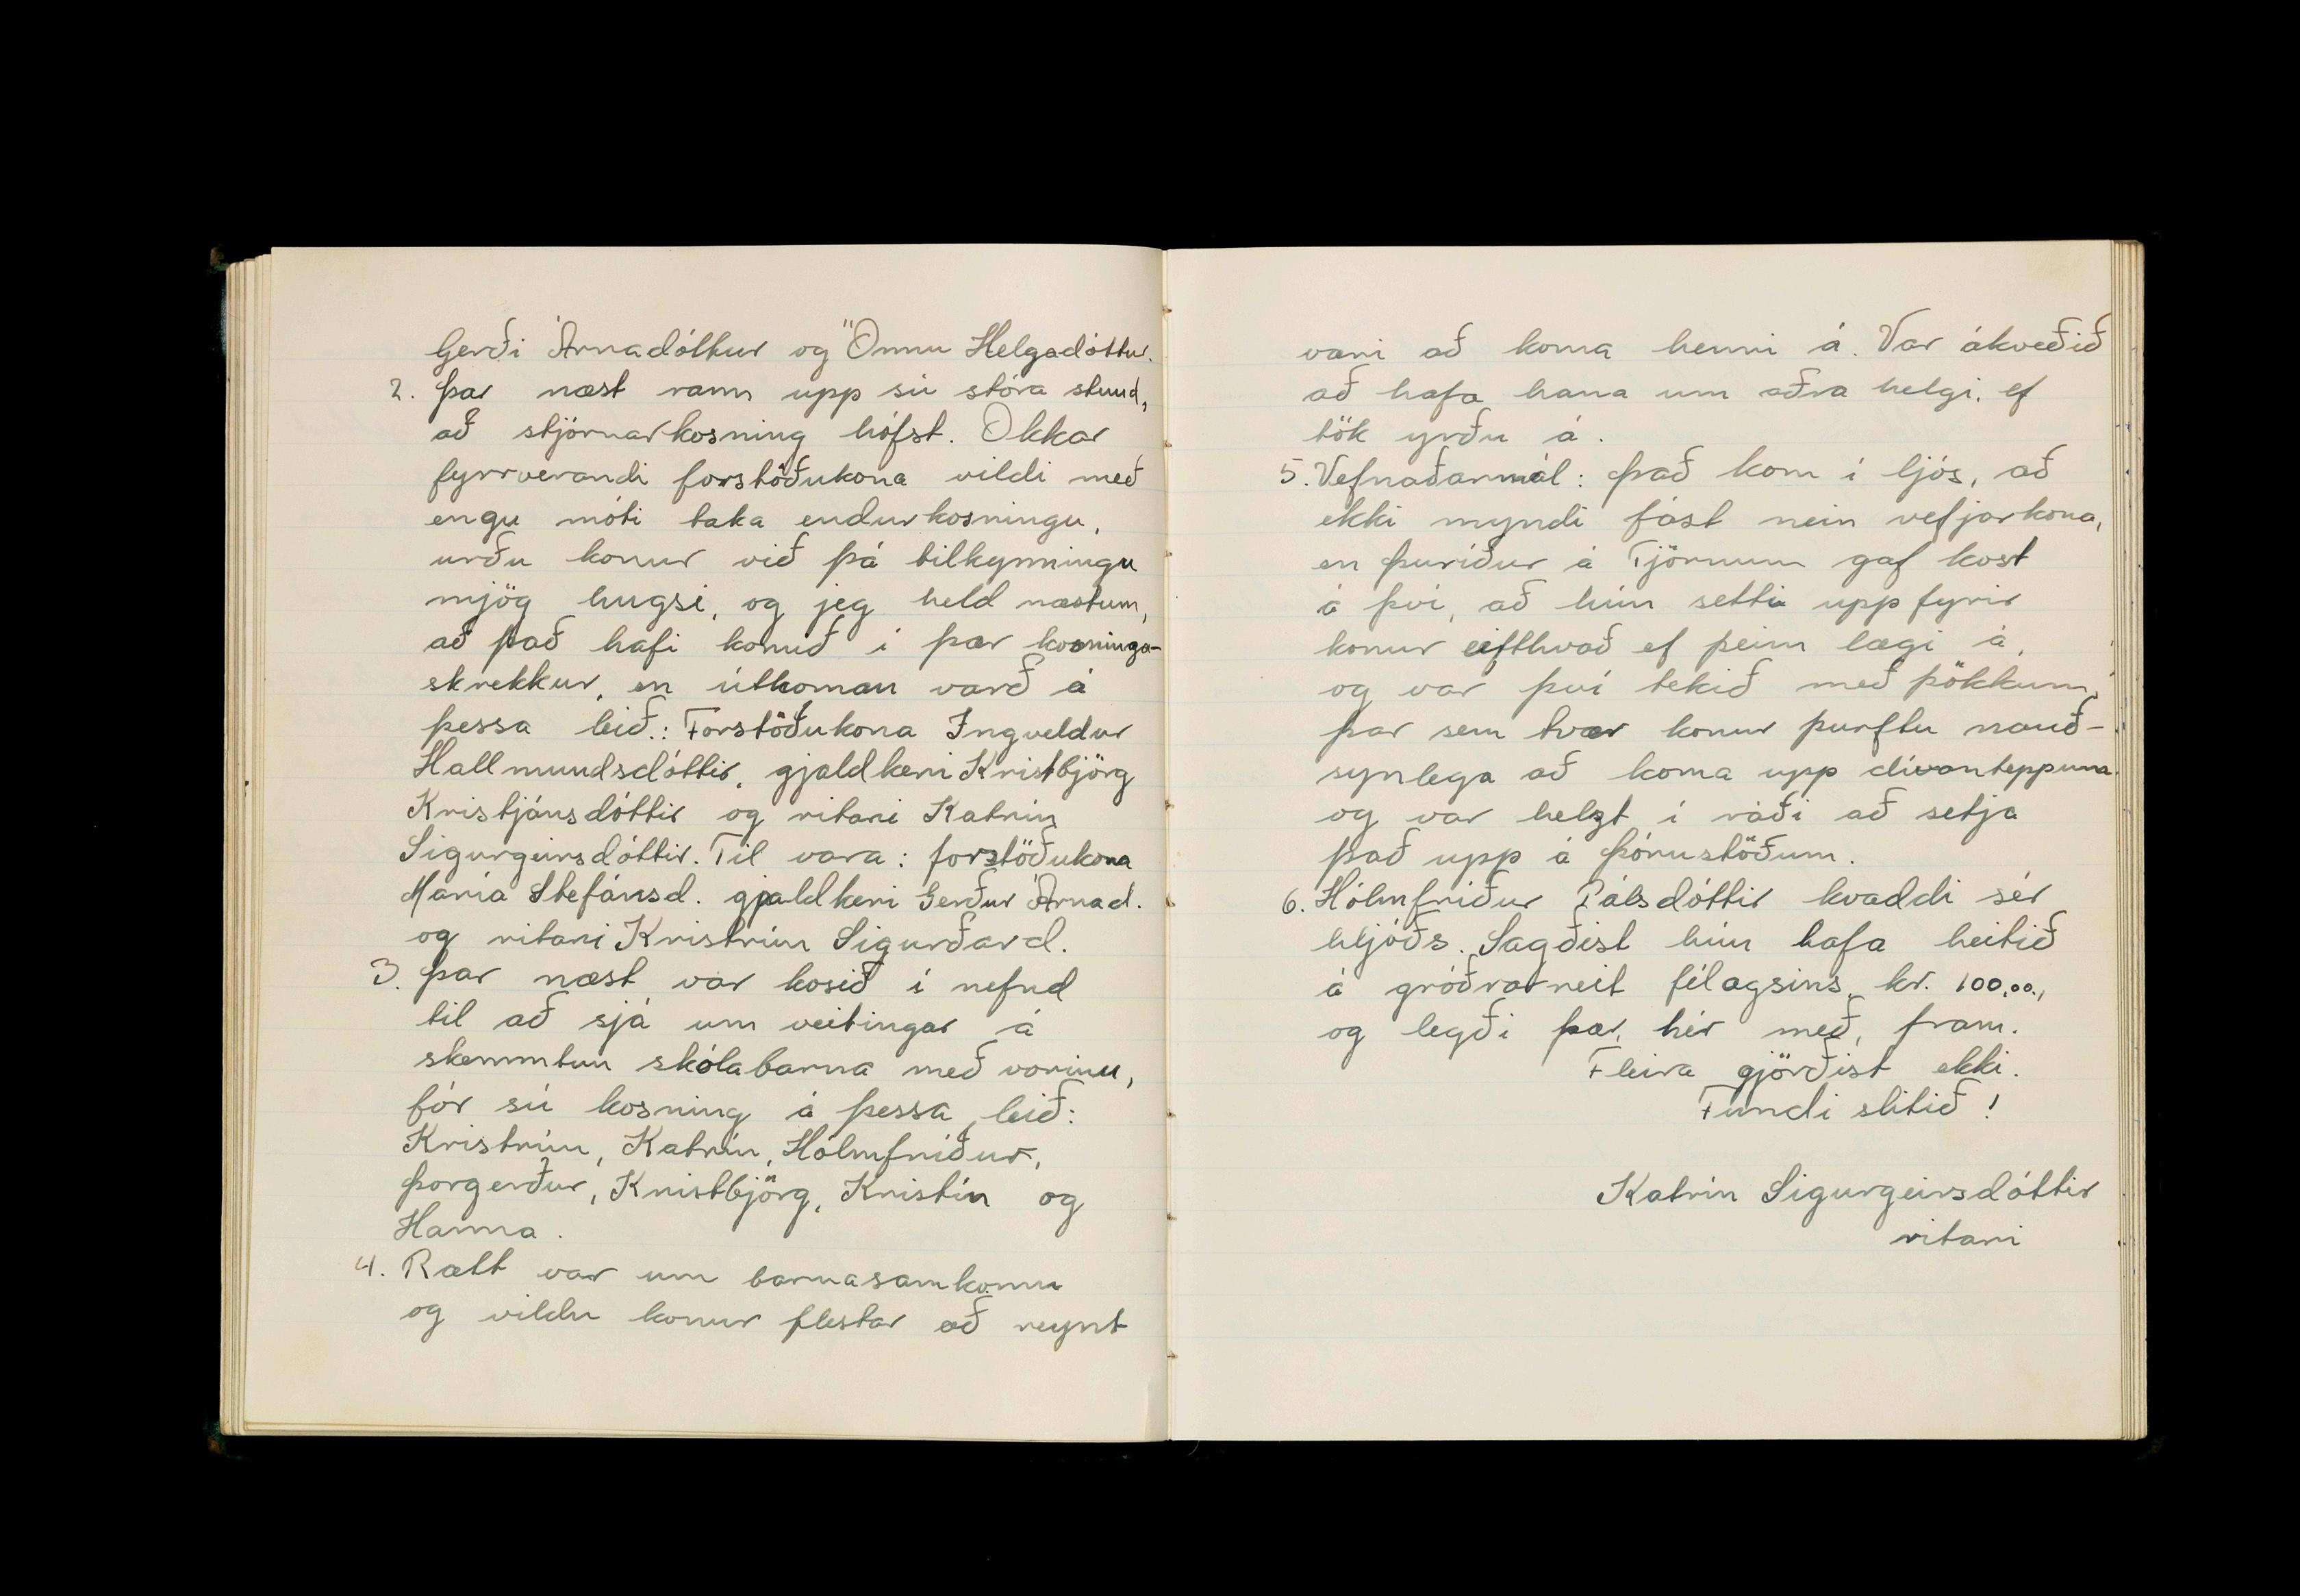 Gerði Árnadóttur og Önnu Helgadóttur.
2. Þar næst rann upp sú stóra stund,
að stjórnarkosning hófst. Okkar
fyrrverandi forstöðukona vildi með
engu móti taka endurkosningu,
urðu konur við þá tilkynningu
mjög hugsi, og jeg held næstum,
að það hafi komið í þær kosninga-
skrekkur, en útkoman varð á
þessa leið.: Forstöðukona Ingveldur
Hallmundsdóttir, gjaldkeri Kristbjörg
Kristjánsdóttir og ritari Katrín
Sigurgeirsdóttir. Til vara: forstöðukona
María Stefánsd. gjaldkeri Gerður Árnad.
og ritari Kristrún Sigurðard.
3. Þar næst var kosið í nefnd
til að sjá um veitingar á
skemmtun skólabarna með vorinu,
fór sú kosning á þessa leið:
Kristrún, Katrín, Hólmfríður,
Þorgerður, Kristbjörg, Kristín og
Hanna.
4. Rætt var um barnasamkomu
og vildu konur flestar að reynt
væri að koma henni á. Var ákveðið
að hafa hana um aðra helgi, ef
tök yrðu á.
5. Vefnaðarmál: Það kom í ljós, að
ekki myndi fást nein vefjarkona,
en Þuríður á Tjörnum gaf kost
á því, að hún setti upp fyrir
konur eifthvað ef þeim lægi á,
og var því tekið með þökkum,
þar sem tvær konur þurftu nauð-
synlega að koma upp dívanteppuna
og var helzt í ráði að setja
það upp á Þórustöðum.
6. Hólmfríður Pálsdóttir kvaddi sér
hljóðs. Sagðist hún hafa heitið
á gróðrarreit félagsins, kr. 100,00.,
og legði þær, hér með, fram.
Fleira gjörðist ekki.
Fundi slitið!
Katrín Sigurgeirsdóttir
ritari